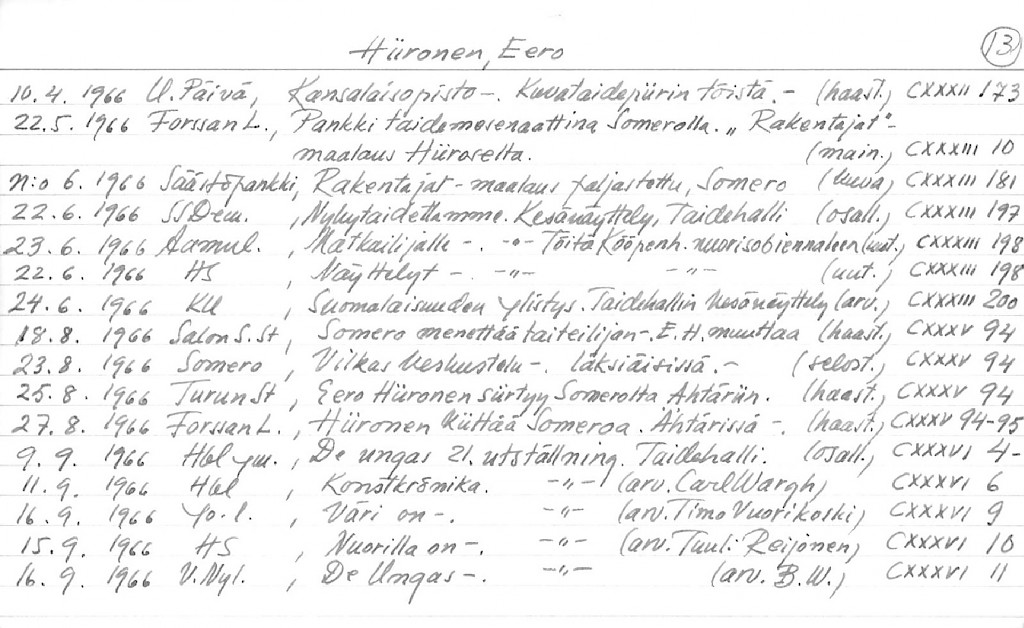 Hiironen, Eero 13
10.4. 1966 U. Päivä, Kansalaisopisto -. Kuvataidepiirin töistä. - (haast.) CXXXII 173
22.5. 1966 Forssan L., Pankki taidemesenaattina Somerolla. „ Rakentajat"-
maalaus Hiiroselta. (main.) CXXXIII 10
N:o 6. 1966 Säästöpankki, Rakentajat - maalaus paljastettu, Somero (kuva) CXXXIII 181
22.6. 1966 SSDem. , Nykytaidettamme. Kesänäyttely, Taidehalli (osall.) CXXXIII 197
23.6. 1966 Aamul. , Matkailijalle -. -„- Töitä Kööpenh. nuorisobiennaleen (uut.) CXXXIII 198
22.6. 1966 HS , Näyttelyt -. -„- -„- (uut.) CXXXIII 198
24.6. 1966 KU , Suomalaisuuden ylistys. Taidehallin kesänäyttely (arv.) CXXXIII 200
18.8. 1966 Salon S. St , Somero menettää taiteilijan -. E. H. muuttaa (haast.) CXXXV 94
23.8. 1966 Somero , Vilkas keskustelu -. läksiäisissä. - (selost.) CXXXV 94
25.8. 1966 Turun St , Eero Hiironen siirtyy Somerolta Ähtäriin. (haast.) CXXXV 94
27.8. 1966 Forssan L. , Hiironen kiittää Someroa. Ähtärissä -. (haast.) CXXXV 94-95
9.9. 1966 Hbl ym. , De ungas 21. utställning. Taidehalli. (osall.) CXXXVI 4-
11.9. 1966 Hbl , Konstkrönika. -„- (arv. Carl Wargh) CXXXVI 6
16.9. 1966 Yo-l. , Väri on -. -„- (arv. Timo Vuorikoski) CXXXVI 9
15.9. 1966 HS , Nuorilla on -. -„- (arv. Tuuli Reijonen) CXXXVI 10
16.9. 1966 V. Nyl. , De Ungas -. -„- (arv. B.W.) CXXXVI 11